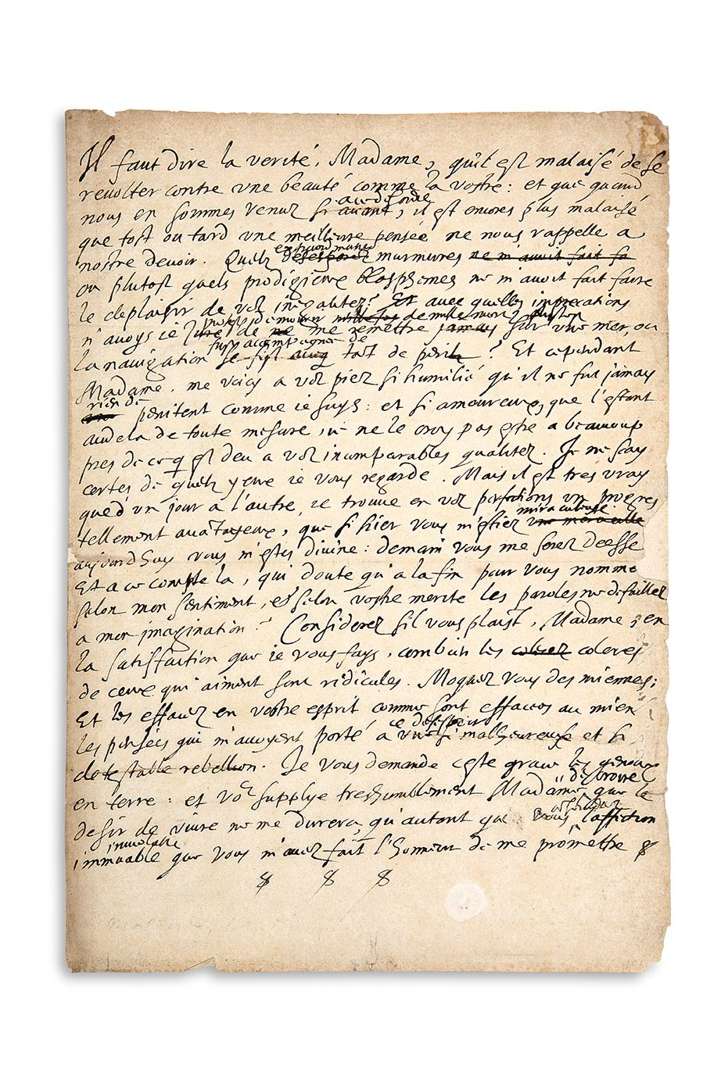 Il faut dire la verité, Madame, qu'il est malaisé de se
revolter contre vne beauté comme la vostre: et que quand
au desordre
nous en sommes venuz si auant, il est encores plus malaisé
que tost ou tard vne meilleure pensée ne nous rappelle a
nostre deuoir. Quelz desesperez murmures ne m'auoit fait fa
ou plutost quels prodigieux blasphemes ne m'auoit fait faire
le desplaisir de voz inegalitez? Et auec quelles imprecations
n'auoys ie de ne me remettre jamays sur vne mer, ou
la nauigation tost de peril? Et cependant
Madame, me voicy a voz piez si humilié qu'il ne fut jamays
rien de
penitent comme ie suys: et si amoureux, que l'estant
au dela de toute mesure, ie ne le croy pas estre a beaucoup
pres de ce q deu a voz incomparables qualitez. Je ne sçay
certes de quelz yeux ie vous regarde. Mais il est tres vray
que d'un jour a l'autre, ie trouue en voz perfections un progres
miraculeuse
tellement auātageux, que si hier vous m'estiez vne merueille
aujourdhuy vous m'estes diuine: demain vous me serez Deesse
Et a ce compte la, qui doute qu'a la fin pour vous nommer
selon mon sentiment, et selon vostre merite les paroles ne defaillent
a mon imagination? Considerez s'il vous plaist, Madame, en
la satisfaction que ie vous fays, combien les coleres
de ceux qui aiment sont ridicules. Moquez vous des miennes;
Et les effacez en vostre esprit comme sont effacees au mien
ce desespoir
les pensées qui m'auoyent porté a vne si malheureuse et si
detestable rebellion. Je vous demande ceste grace les genoux
en terre: et vo⁹ supplye treshumblement Madame, que le
desir de viure ne me durera, qu'autant que vous l'affection
inuiolable
immuable que vous m'auez fait l'honneur de me promettre